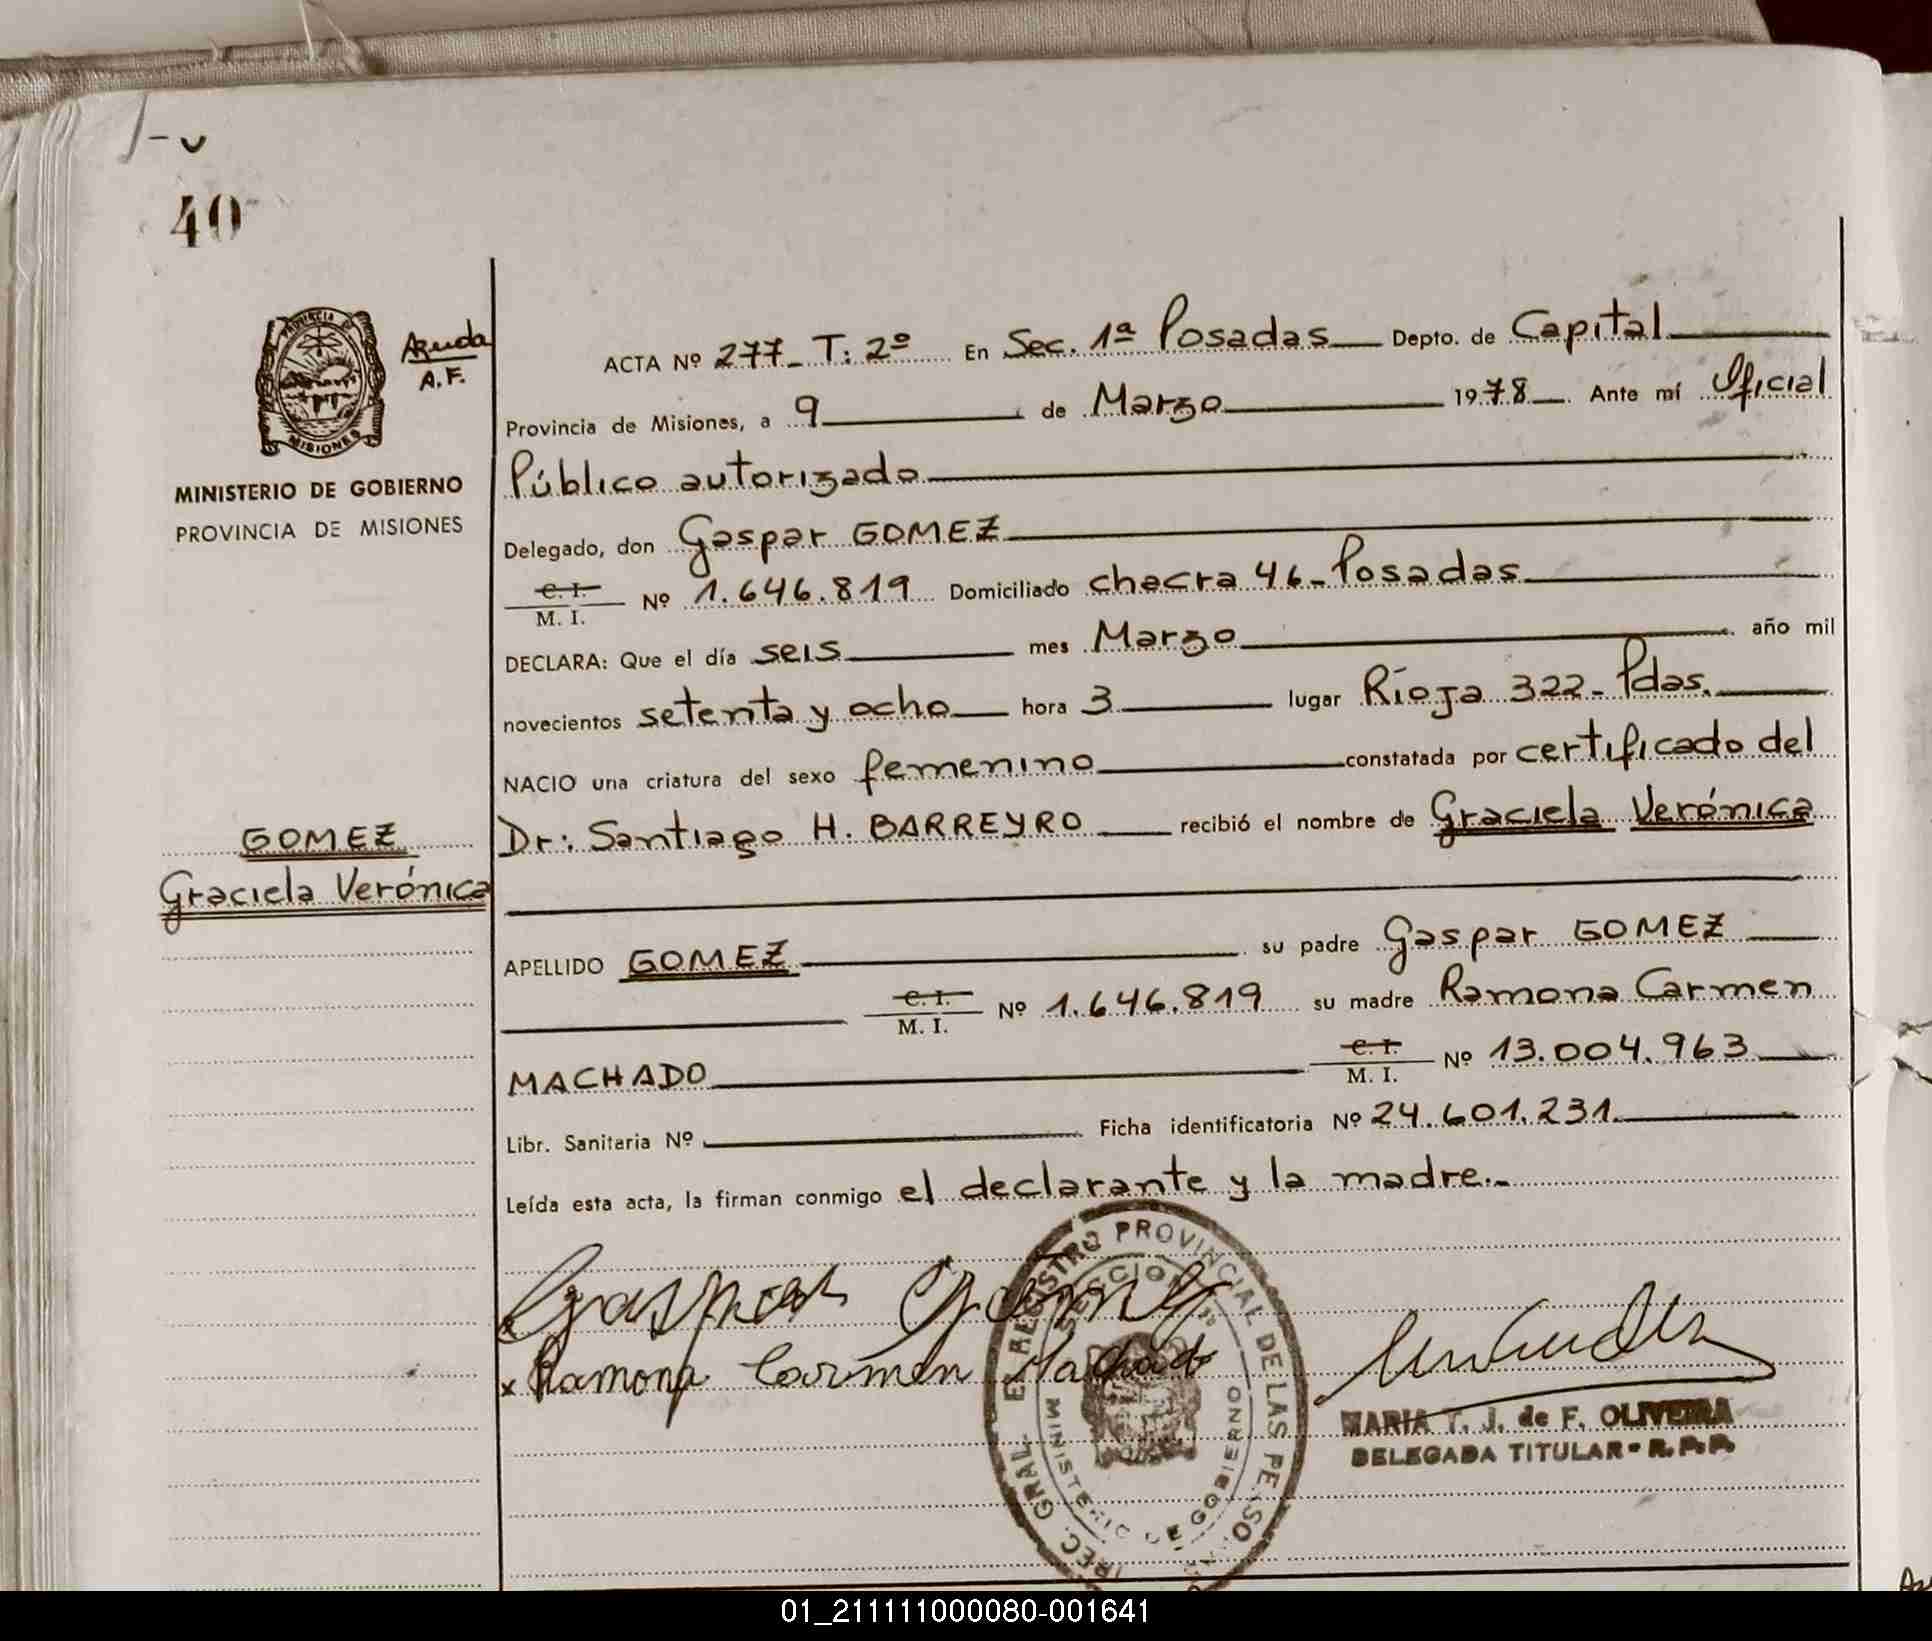 40
PROVINCIA DE
MISIONES
Ayuda
A.F.
MINISTERIO DE GOBIERNO
PROVINCIA DE MISIONES
ACTA Nº 277_ T: 2º En Sec. 1ª Posadas Depto. de Capital
Provincia de Misiones, a 9 de Marzo 1978 Ante mí Oficial
Público autorizado
Delegado, don Gaspar GOMEZ
C. I.
M. I. Nº 1.646.819 Domiciliado chacra 46_ Posadas
DECLARA: Que el día seis mes Marzo año mil
novecientos setenta y ocho hora 3 lugar Rioja 322_ Pdas.
NACIO una criatura del sexo femenino constatada por certificado del
Dr: Santiago H. BARREYRO recibió el nombre de Graciela Verónica
GOMEZ
Graciela Verónica
APELLIDO GOMEZ su padre Gaspar GOMEZ
C. I.
M. I. Nº 1.646.819 su madre Ramona Carmen
MACHADO C. I.
M. I. Nº 13.004.963
Libr. Sanitaria Nº Ficha identificatoria Nº 24.601.231
Leída esta acta, la firman conmigo el declarante y la madre._
Gaspar Gomez
x Ramona Carmen Machado
REGISTRO PROVINCIAL DE LAS PERSO
SECCION 1º
MINISTERIO DE GOBIERNO
MARIA T. J. de F. OLIVEIRA
DELEGADA TITULAR - R. P. P.
01_211111000080-001641